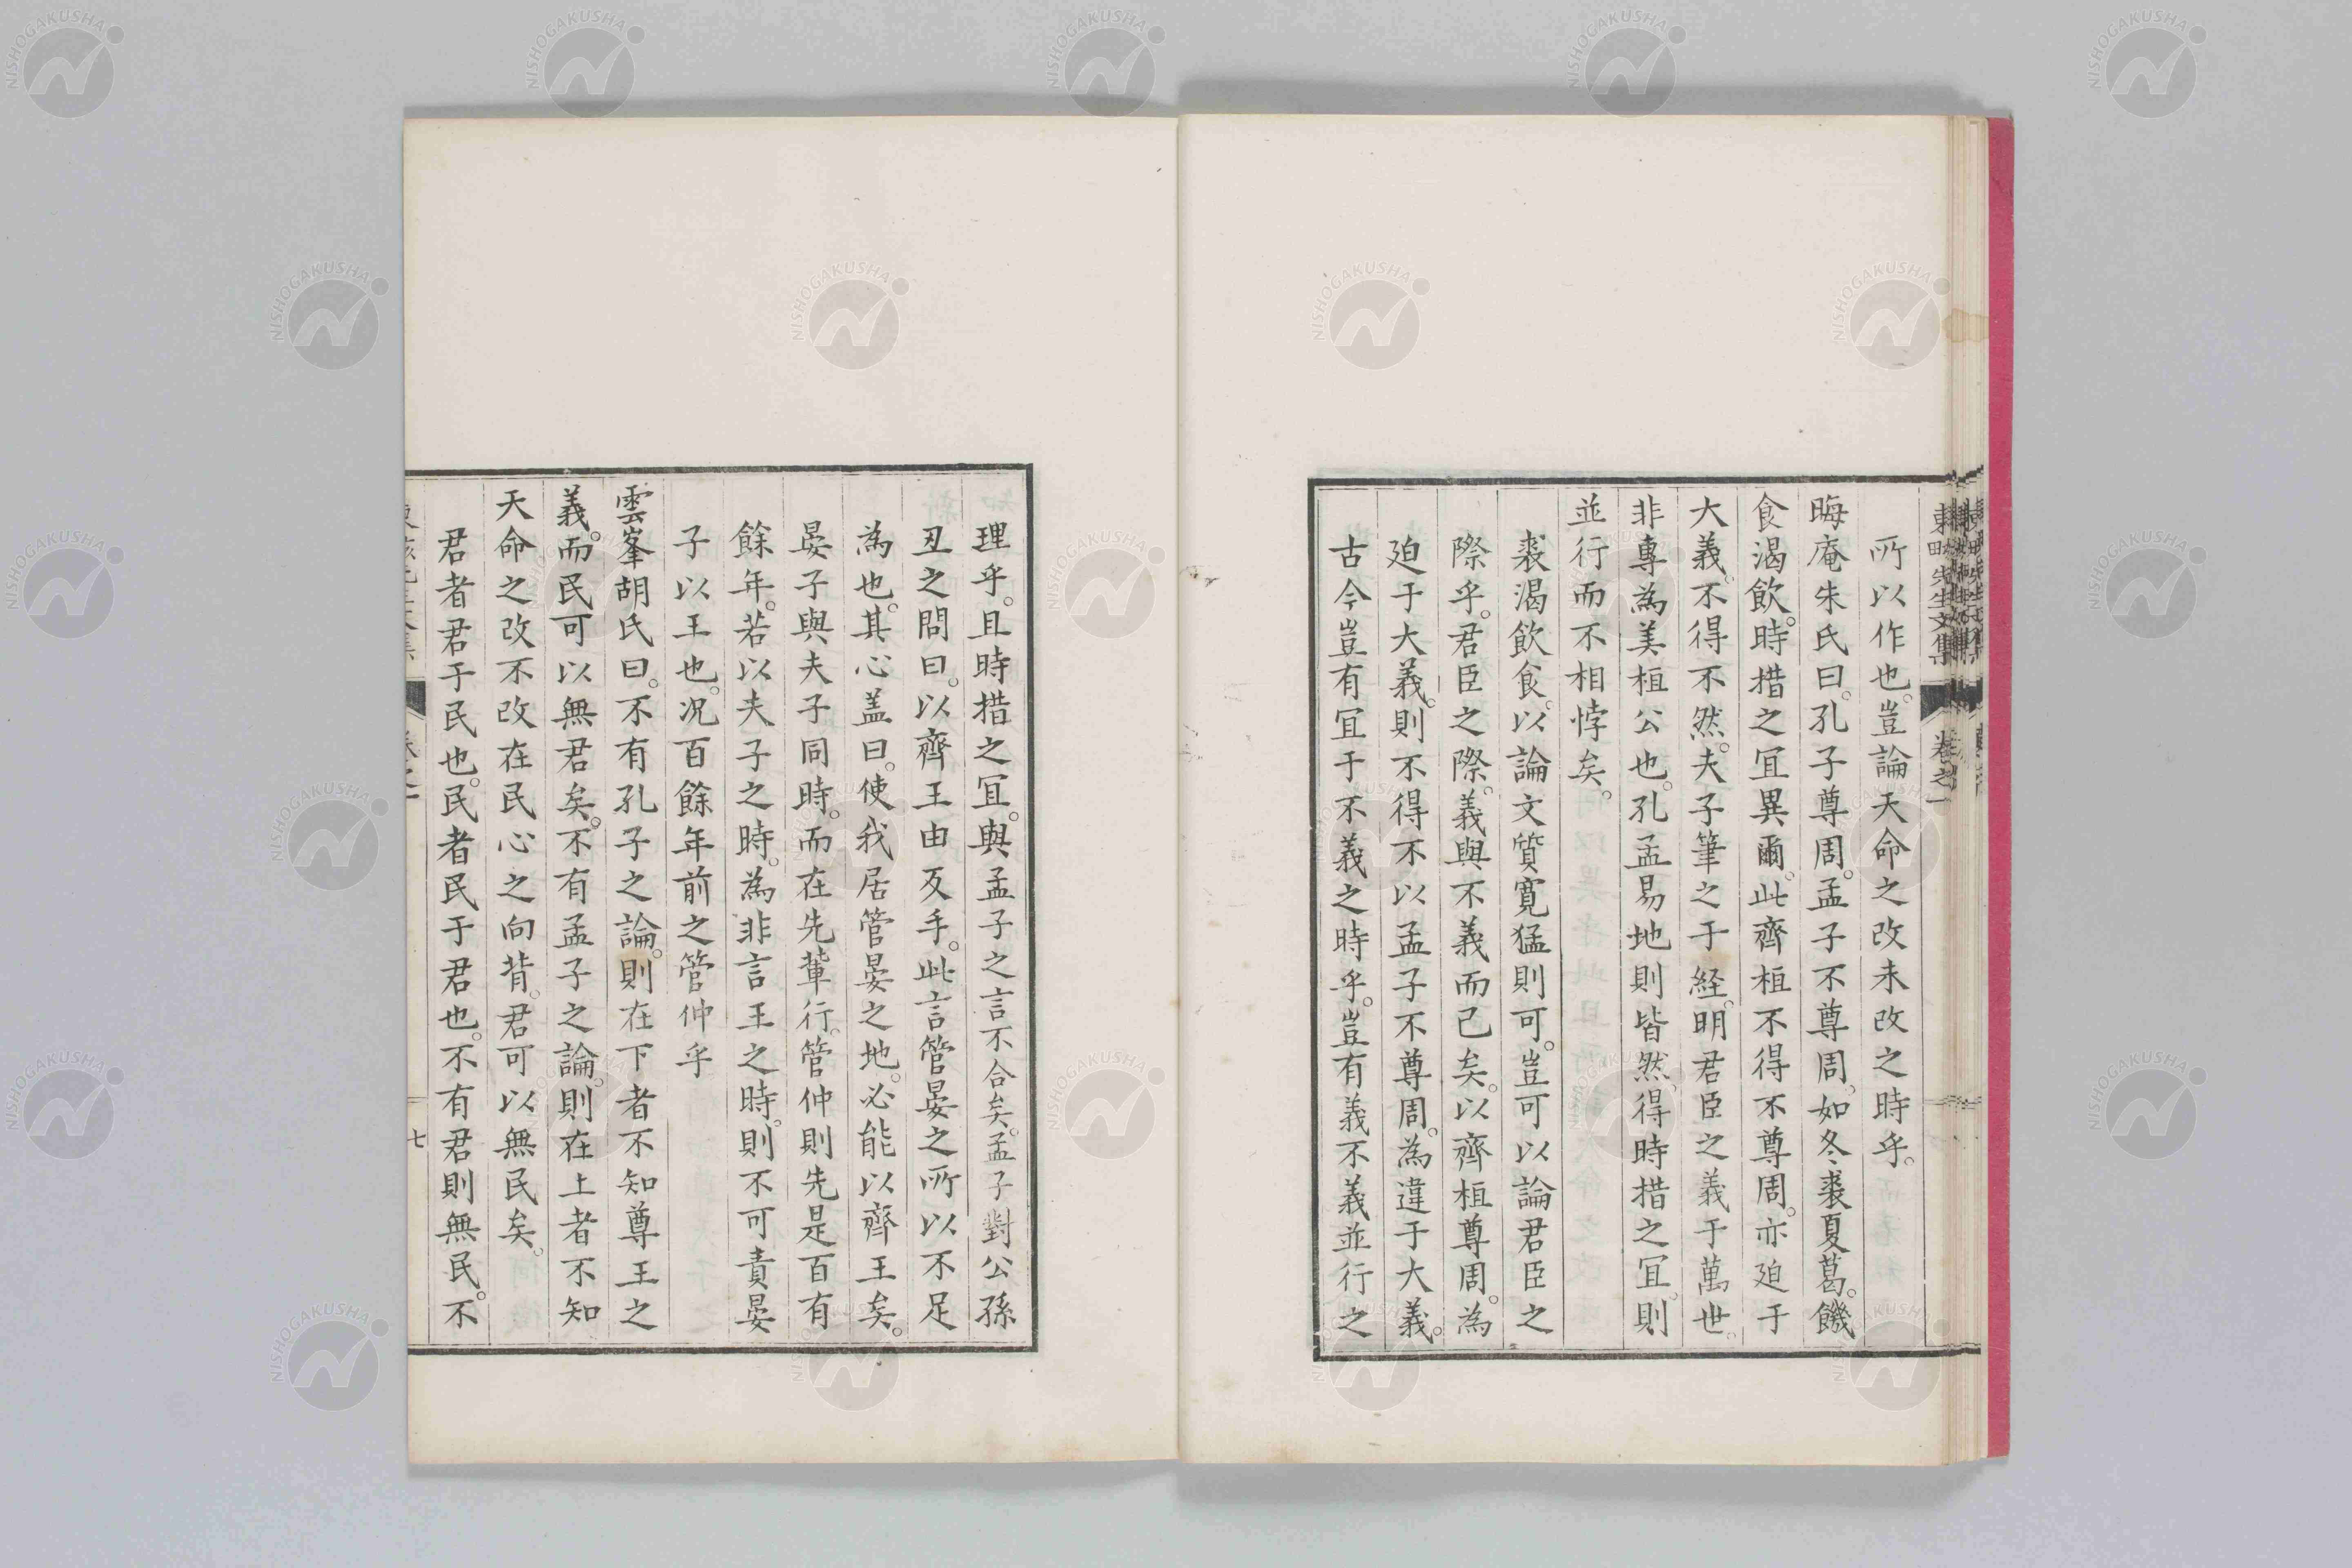 所以作也。豈論天命之改未改之時乎。
晦庵朱氏曰。孔子尊周。孟子不尊周。如冬裘夏葛。饑
食渴飲。時措之宜異爾。此齊桓不得不尊周。亦廹于
大義。不得不然。夫子筆之于経。明君臣之義于萬世。
非專為美桓公也。孔孟易地則皆然。得時措之宜。則
並行而不相悖矣。
裘渴飲食。以論文質寛猛則可。豈可以論君臣之
際乎。君臣之際。義與不義而已矣。以齊桓尊周。為
廹于大義。則不得不以孟子不尊周。為違于大義。
古今豈有宜于不義之時乎。豈有義不義並行之
理乎。且時措之宜。與孟子之言不合矣。孟子對公孫
丑之問曰。以齊王由反手。此言管晏之所以不足
為也。其心盖曰。使我居管晏之地。必能以齊王矣。
晏子與夫子同時。而在先輩行。管仲則先是百有
餘年。若以夫子之時。為非言王之時。則不可責晏
子以王也。況百餘年前之管仲乎
雲峯胡氏曰。不有孔子之論。則在下者不知尊王之
義。而民可以無君矣。不有孟子之論。則在上者不知
天命之改不改在民心之向背。君可以無民矣。
君者君于民也。民者民于君也。不有君則無民。不
七
卷之一
NISHOGAKUSHA